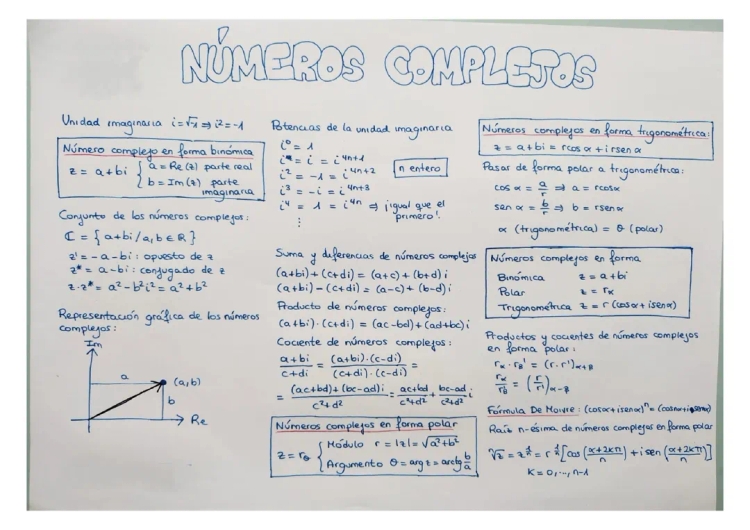 NÚMEROS COMPLEJOS
Unidad imaginaria i = √-1 ⇒ i² = -1
Número complejo en forma binómica
z = a+bi { a = Re(z) parte real
b = Im(z) parte
imaginaria
Conjunto de los números complejos:
ℂ = { a+bi / a, b ∈ ℝ }
z' = -a-bi : opuesto de z
z* = a-bi : conjugado de z
z·z* = a² - b²i² = a² + b²
Representación gráfica de los números
complejos:
Im
a
(a,b)
b
Re
Potencias de la unidad imaginaria
i⁰ = 1
i = i = i⁴ⁿ⁺¹
i² = -1 = i⁴ⁿ⁺²
n entero
i³ = -i = i⁴ⁿ⁺³
i⁴ = 1 = i⁴ⁿ ⇒ ¡igual que el
primero!
⋮
Suma y diferencias de números complejos
(a+bi)+(c+di) = (a+c)+(b+d)i
(a+bi)-(c+di) = (a-c)+(b-d)i
Producto de números complejos:
(a+bi)·(c+di) = (ac-bd)+(ad+bc)i
Cociente de números complejos:
(a+bi)/(c+di) = (a+bi)·(c-di)/(c+di)·(c-di) =
= ((ac+bd)+(bc-ad)i)/(c²+d²) = (ac+bd)/(c²+d²) + (bc-ad)/(c²+d²) i
Números complejos en forma polar
z = r_θ { Módulo r = |z| = √(a²+b²)
Argumento θ = arg z = arctg b/a
Números complejos en forma trigonométrica:
z = a+bi = r cos α + i r sen α
Pasar de forma polar a trigonométrica:
cos α = a/r ⇒ a = r cos α
sen α = b/r ⇒ b = r sen α
α (trigonométrica) = θ (polar)
Números complejos en forma
Binómica z = a+bi
Polar z = r_α
Trigonométrica z = r (cos α + i sen α)
Productos y cocientes de números complejos
en forma polar:
r_α · r_β' = (r·r')_α+β
r_α/r_β' = (r/r')_α-β
Fórmula De Moivre: (cos α + i sen α)ⁿ = (cos nα + i sen nα)
Raíz n-ésima de números complejos en forma polar
ⁿ√z = z^(1/n) = r^(1/n) [cos ((α+2kπ)/n) + i sen ((α+2kπ)/n)]
K = 0, ..., n-1